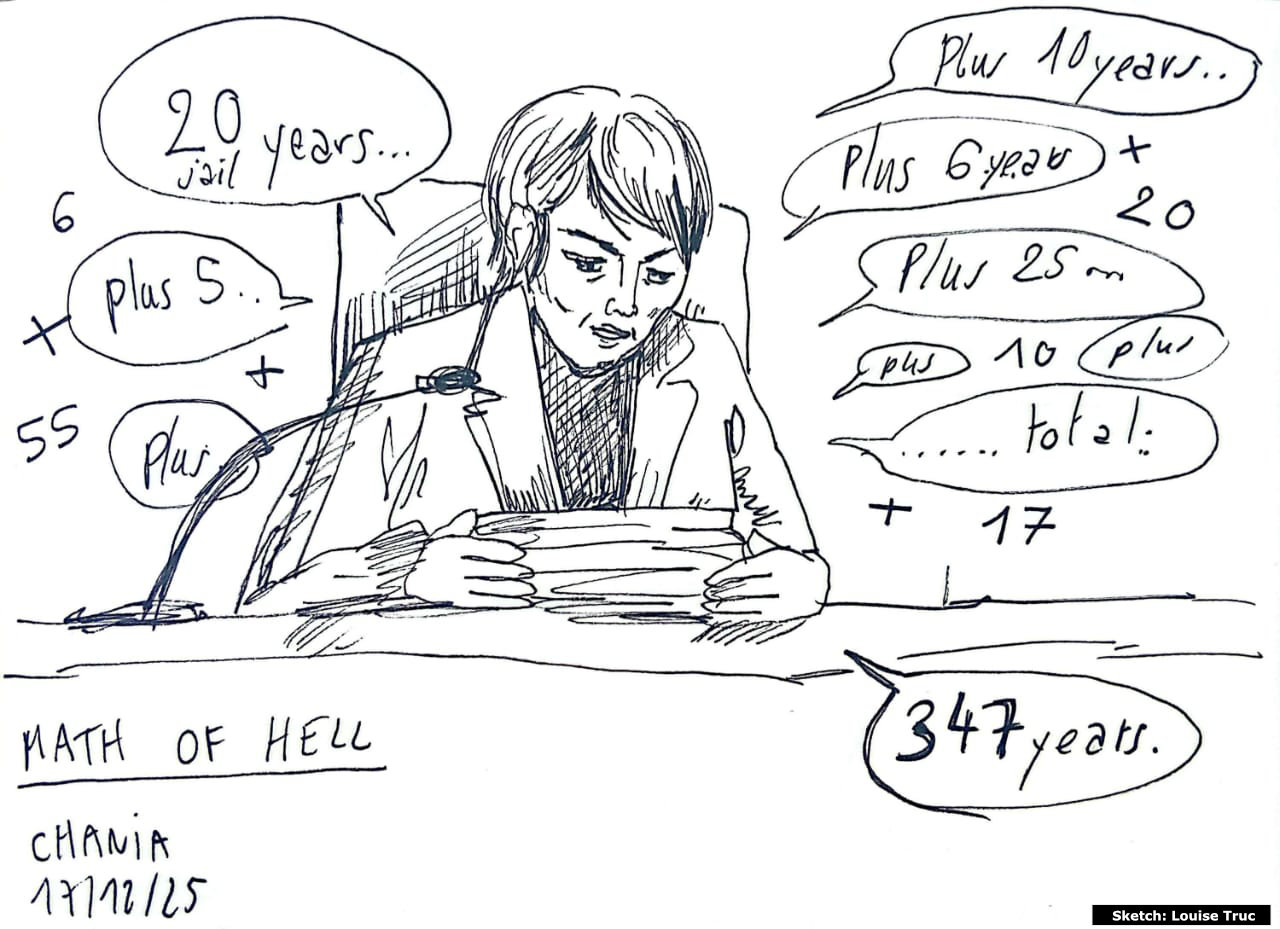 20 years...
jail
6
plus 5...
+
+
55
plus
Plus 10 years..
plus 6 years
+
20
Plus 25
plus
10
plus
...... total:
+
17
347 years.
MATH OF HELL
CHANIA
17/12/25
Sketch: Louise Truc